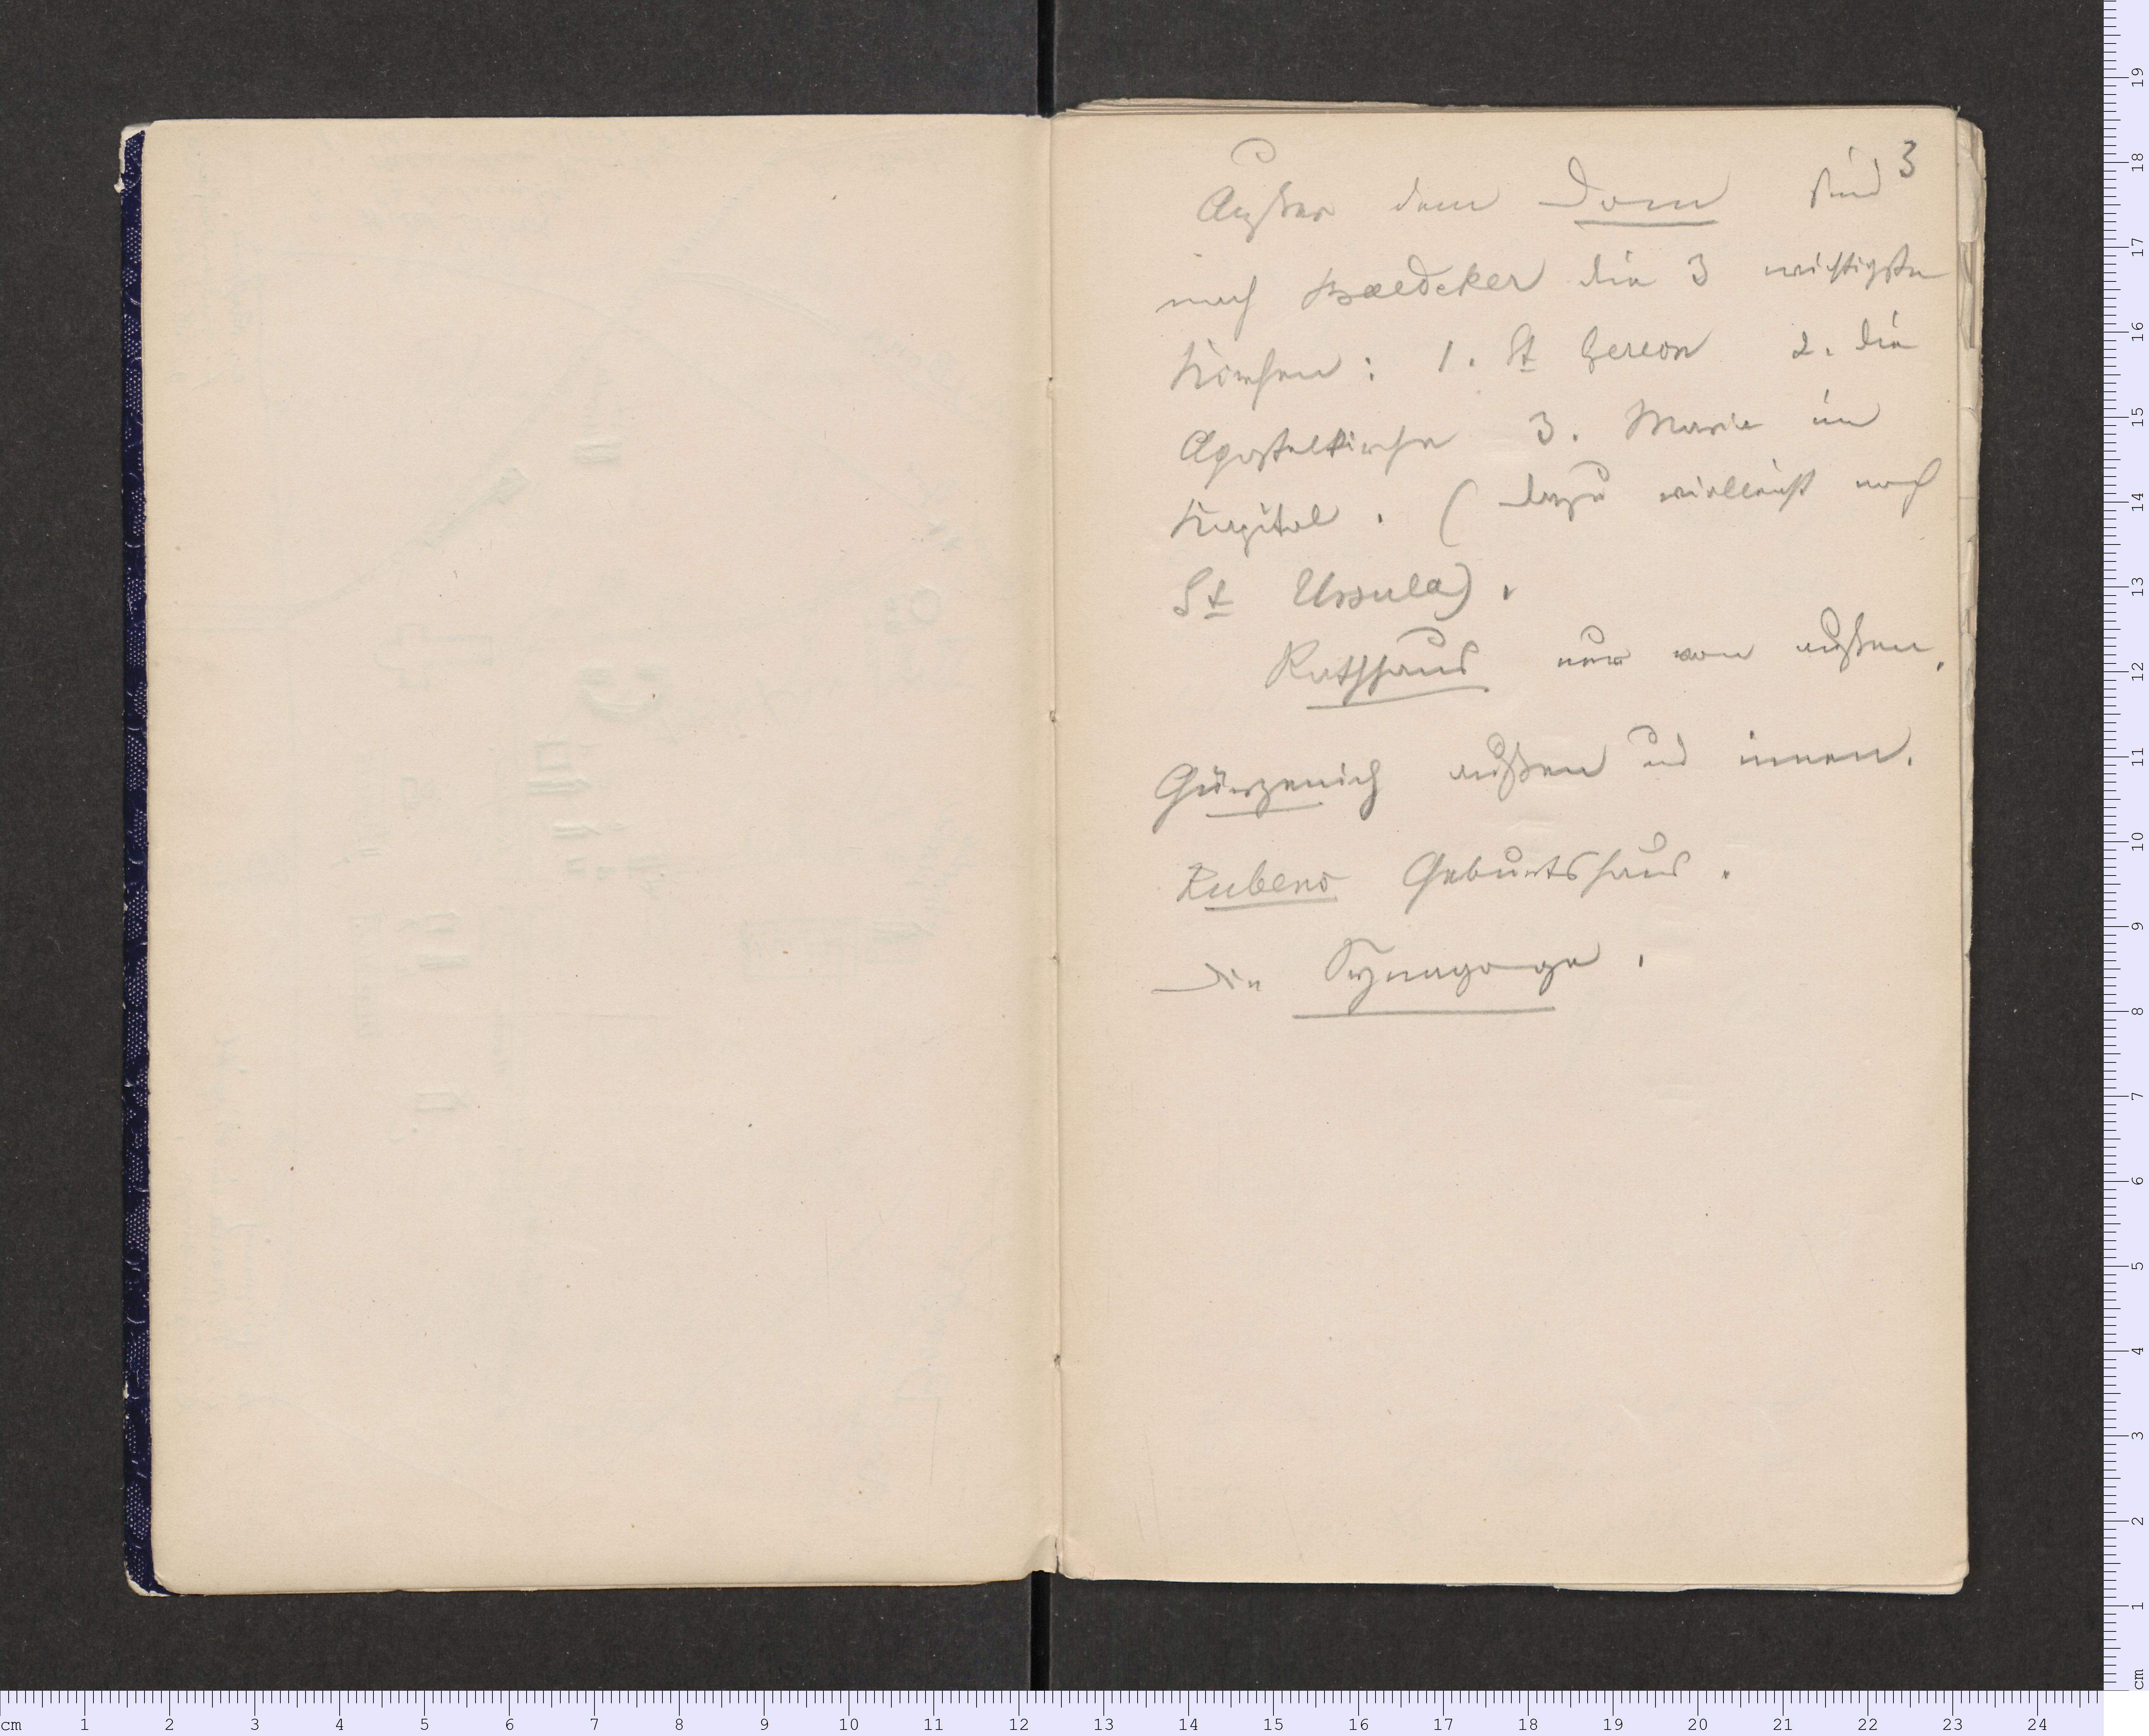 3
Außer dem Dom sind
nach Baedeker die 3 wichtigsten
Kirchen: 1. St Gereon 2. die
Apostelkirche 3. Marie im
Kapitol. (dazu vielleicht noch
St Ursula).
Rathhaus nur von außen.
Gürzenich außen und innen.
Rubens Geburtshaus.
Die Synagoge.